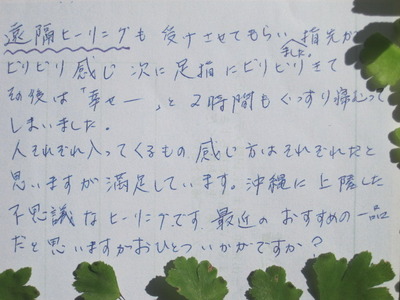 遠隔ヒーリングも受けさせてもらいました。指先が
ビリビリ感じ次に足指にビリビリきて
その後は「幸せー」と2時間もぐっすり寝入って
しまいました。
人それぞれ入ってくるもの感じ方はそれぞれだと
思いますが満足しています。沖縄に上陸した
不思議なヒーリングです。最近のおすすめの一品
だと思いますがおひとついかがですか?